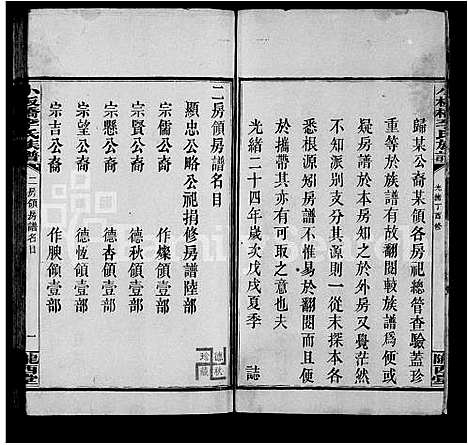 歸某公裔某領各房祀總管查驗蓋珍
重等於族譜有故翻閱較族譜為便或
疑房譜於本房知之於外房又別一本
不知派別支分其源則一從末探本各
悉根源矧房譜不惟易於翻閱而且有
於攜帶其亦有可取之意云爾
光緒二十四年歲次戊戌夏季 誌
小板橋李氏族譜
光緒丁酉修
隴西堂
二房領房譜名目
顯忠公略公祀捐修房譜陸部
宗儒公裔 作燦領壹部
宗賢公裔 德修領壹部
宗懸公裔 德杏領壹部
宗望公裔 德恆領壹部
宗吉公裔 作腴領壹部
小板橋李氏族譜
二房領房譜名目
一
隴西堂
德秋珍藏